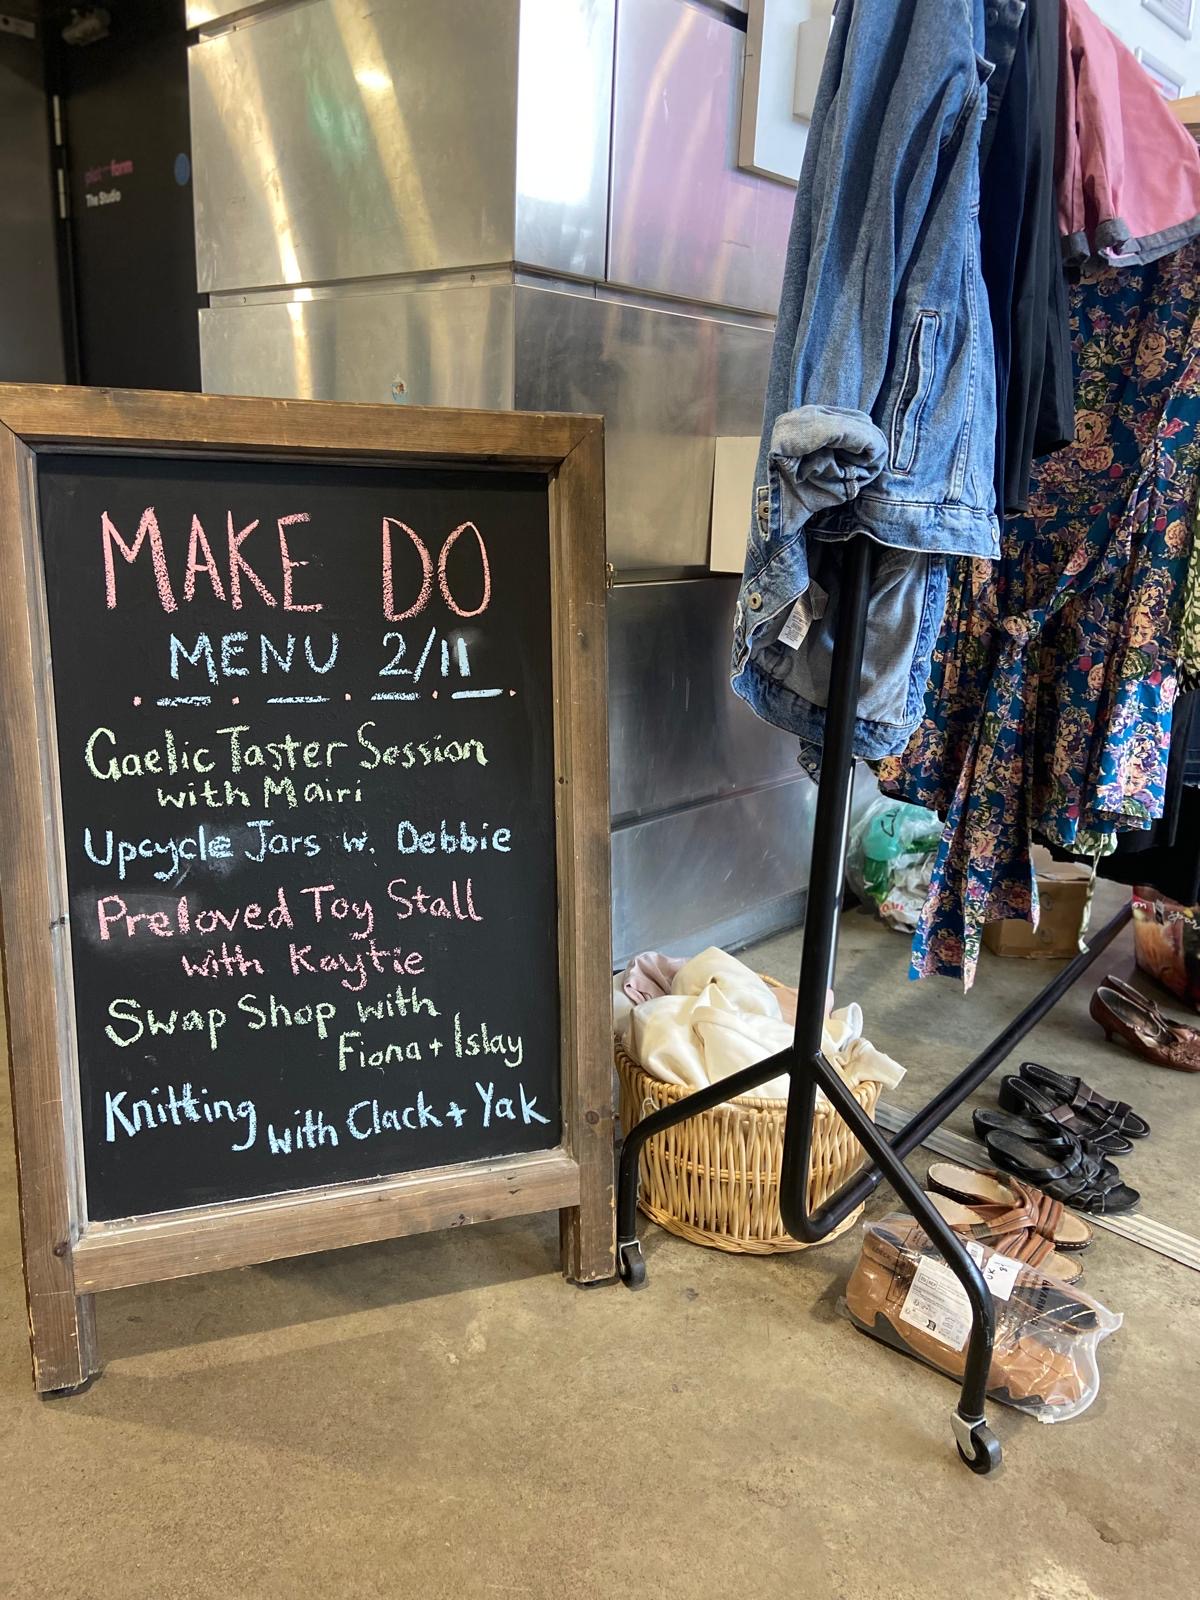 platform
The Studio
MAKE DO
MENU 2/11
Gaelic Taster Session
with Mairi
Upcycle Jars w. Debbie
Preloved Toy Stall
with Kaytie
Swap Shop with
Fiona + Islay
Knitting with Clack + Yak
UK